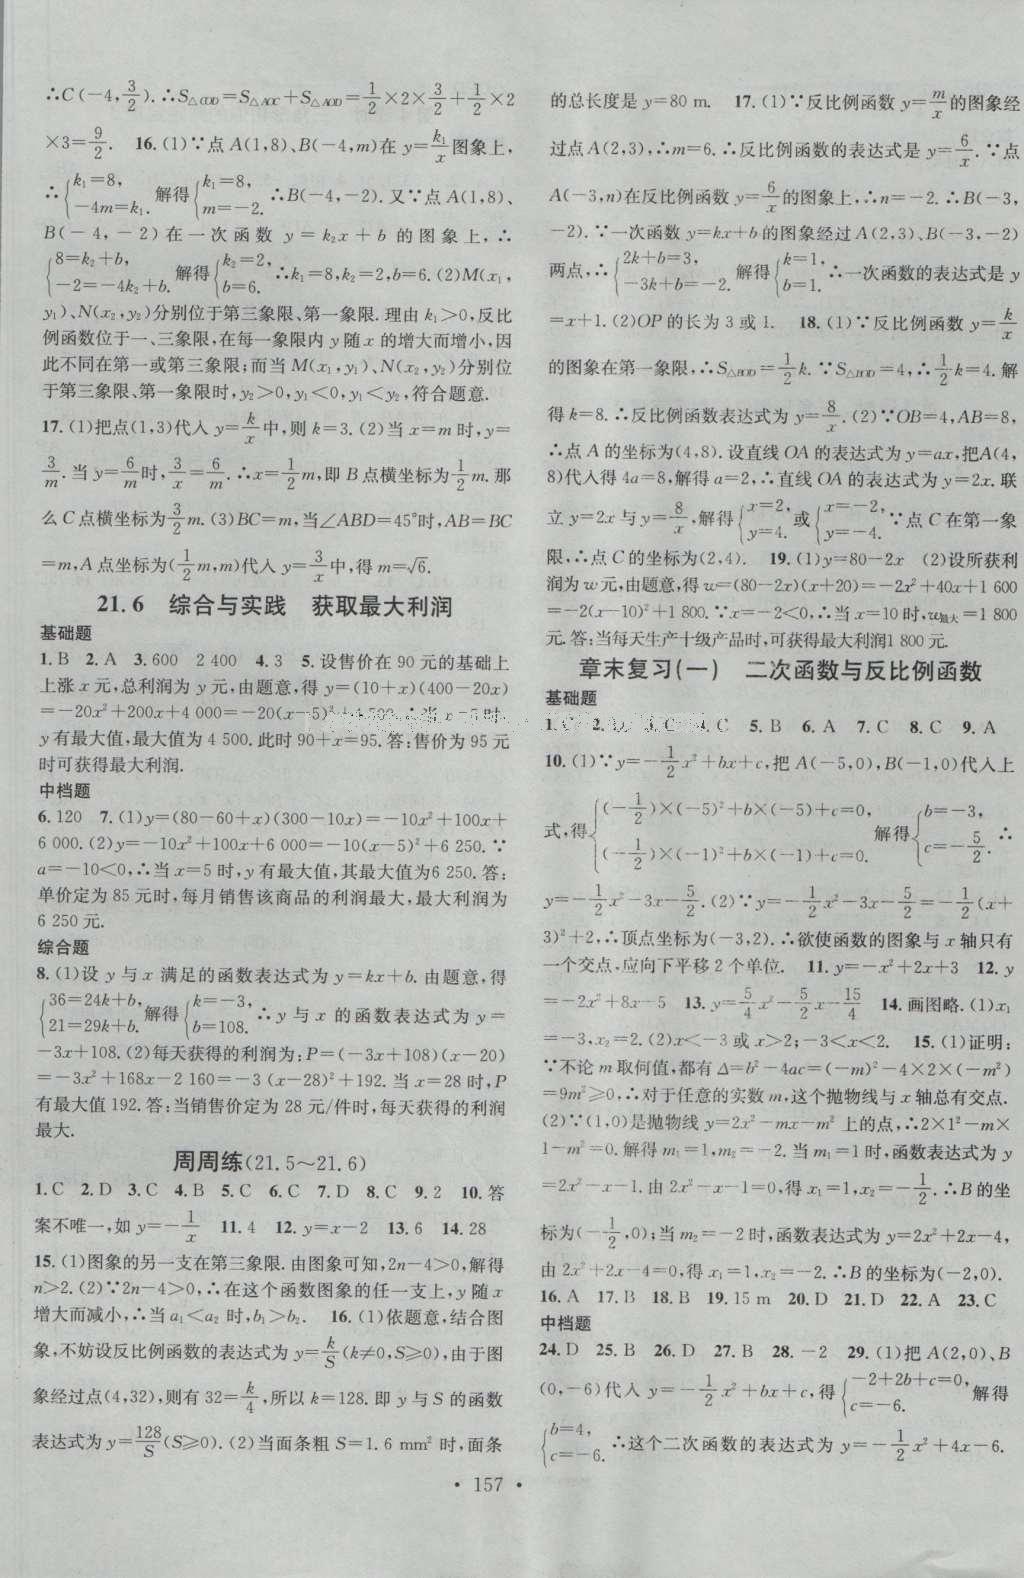 ∴C(-4,3/2).∴S△COD=S△AOC+S△AOD=1/2×2×3/2+1/2×2
×3=9/2. 16.(1)∵点A(1,8)、B(-4,m)在y=k₁/x图象上,
∴{k₁=8, -4m=k₁. 解得{k₁=8, m=-2. ∴B(-4,-2).又∵点A(1,8)、
B(-4,-2)在一次函数y=k₂x+b的图象上,∴
{8=k₂+b, -2=-4k₂+b. 解得{k₂=2, b=6. ∴k₁=8,k₂=2,b=6.(2)M(x₁,
y₁)、N(x₂,y₂)分别位于第三象限、第一象限.理由k₁>0,反比
例函数位于一、三象限,在每一象限内y随x的增大而增小,因
此不同在第一或第三象限;而当M(x₁,y₁)、N(x₂,y₂)分别位
于第三象限、第一象限时,y₂>0,y₁<0,y₁<y₂,符合题意.
17.(1)把点(1,3)代入y=k/x中,则k=3.(2)当x=m时,y=
3/m.当y=6/m时,3/x=6/m.∴x=1/2m,即B点横坐标为1/2m.那
么C点横坐标为3/2m.(3)BC=m,当∠ABD=45°时,AB=BC
=m,A点坐标为(1/2m,m)代入y=3/x中,解得m=√6.
21.6 综合与实践 获取最大利润
基础题
1.B 2.A 3.600 2 400 4.3 5.设售价在90元的基础上
上涨x元,总利润为y元,由题意,得y=(10+x)(400-20x)
=-20x²+200x+4 000=-20(x-5)²+4 500.∴当x=5时,
y有最大值,最大值为4 500.此时90+x=95.答:售价为95元
时可获得最大利润.
中档题
6.120 7.(1)y=(80-60+x)(300-10x)=-10x²+100x+
6 000.(2)y=-10x²+100x+6 000=-10(x-5)²+6 250.∵
a=-10<0,∴当x=5时,y有最大值,其最大值为6 250.答:
单价定为85元时,每月销售该商品的利润最大,最大利润为
6 250元.
综合题
8.(1)设y与x满足的函数表达式为y=kx+b.由题意,得
{36=24k+b, 21=29k+b. 解得{k=-3, b=108. ∴y与x的函数表达式为y=
-3x+108.(2)每天获得的利润为:P=(-3x+108)(x-20)
=-3x²+168x-2 160=-3(x-28)²+192.当x=28时,P
有最大值192.答:当销售价定为28元/件时,每天获得的利润
最大.
周周练(21.5~21.6)
1.C 2.D 3.C 4.B 5.C 6.C 7.D 8.C 9.2 10.答
案不唯一,如y=-1/x 11.4 12.y=x-2 13.6 14.28
15.(1)图象的另一支在第三象限.由图象可知,2n-4>0,解得
n>2.(2)∵2n-4>0,∴在这个函数图象的任一支上,y随x
增大而减小,∴当a₁<a₂时,b₁>b₂. 16.(1)依题意,结合图
象,不妨设反比例函数的表达式为y=k/S(k≠0,S≥0),由于图
象经过点(4,32),则有32=k/4,所以k=128.即y与S的函数
表达式为y=128/S(S≥0).(2)当面条粗S=1.6 mm²时,面条
的总长度是y=80 m. 17.(1)∵反比例函数y=m/x的图象经
过点A(2,3),∴m=6.∴反比例函数的表达式是y=6/x.∵点
A(-3,n)在反比例函数y=6/x的图象上,∴n=-2.∴B(-3,
-2).∵一次函数y=kx+b的图象经过A(2,3)、B(-3,-2)
两点,∴{2k+b=3, -3k+b=-2. 解得{k=1, b=1. ∴一次函数的表达式是y
=x+1.(2)OP的长为3或1. 18.(1)∵反比例函数y=k/x
的图象在第一象限,∴S△BOD=1/2k.∵S△BOD=4,∴1/2k=4.解
得k=8.∴反比例函数表达式为y=8/x.(2)∵OB=4,AB=8,
∴点A的坐标为(4,8).设直线OA的表达式为y=ax,把A(4,
8)代入得4a=8,解得a=2,∴直线OA的表达式为y=2x.联
立y=2x与y=8/x,解得{x=2, y=4. 或{x=-2, y=-4. ∵点C在第一象
限,∴点C的坐标为(2,4). 19.(1)y=80-2x (2)设所获利
润为w元,由题意,得w=(80-2x)(x+20)=-2x²+40x+1 600
=-2(x-10)²+1 800.∵x=-2<0,∴当x=10时,w最大=1 800
元.答:当每天生产十级产品时,可获得最大利润1 800元.
章末复习(一) 二次函数与反比例函数
基础题
2.D 3.C 4.C 5.B 6.A 7.C 8.C 9.A
10.(1)∵y=-1/2x²+bx+c,把A(-5,0),B(-1,0)代入上
式,得{(-1/2)×(-5)²+b×(-5)+c=0, (-1/2)×(-1)²+b×(-1)+c=0. 解得{b=-3, c=-5/2. ∴
y=-1/2x²-3x-5/2.(2)∵y=-1/2x²-3x-5/2=-1/2(x+
3)²+2,∴顶点坐标为(-3,2).∴欲使函数的图象与x轴只有
一个交点,应向下平移2个单位. 11.y=-x²+2x+3 12.y=
-2x²+8x-5 13.y=5/4x²-5/2x-15/4 14.画图略.(1)x₁
=-3,x₂=2.(2)x<-3或x>2;-3<x<2. 15.(1)证明:
∵不论m取何值,都有Δ=b²-4ac=(-m)²-4×2×(-m²)
=9m²≥0,∴对于任意的实数m,这个抛物线与x轴总有交点.
(2)∵(1,0)是抛物线y=2x²-mx-m²上的点,∴2×1²-m×
1-m²=0.解得m₁=1,m₂=-2.当m₁=1时,函数表达式为y
=2x²-x-1.由2x²-x-1=0,得x₁=1,x₂=-1/2.∴B的坐
标为(-1/2,0);当m₂=-2时,函数表达式为y=2x²+2x-4,
由2x²+2x-4=0得x₁=1,x₂=-2.∴B的坐标为(-2,0).
16.A 17.B 18.B 19.15 m 20.D 21.D 22.A 23.C
中档题
24.D 25.B 26.B 27.D 28.-2 29.(1)把A(2,0)、B
(0,-6)代入y=-1/2x²+bx+c,得{-2+2b+c=0, c=-6. 解得
{b=4, c=-6. ∴这个二次函数的表达式为y=-1/2x²+4x-6.
• 157 •